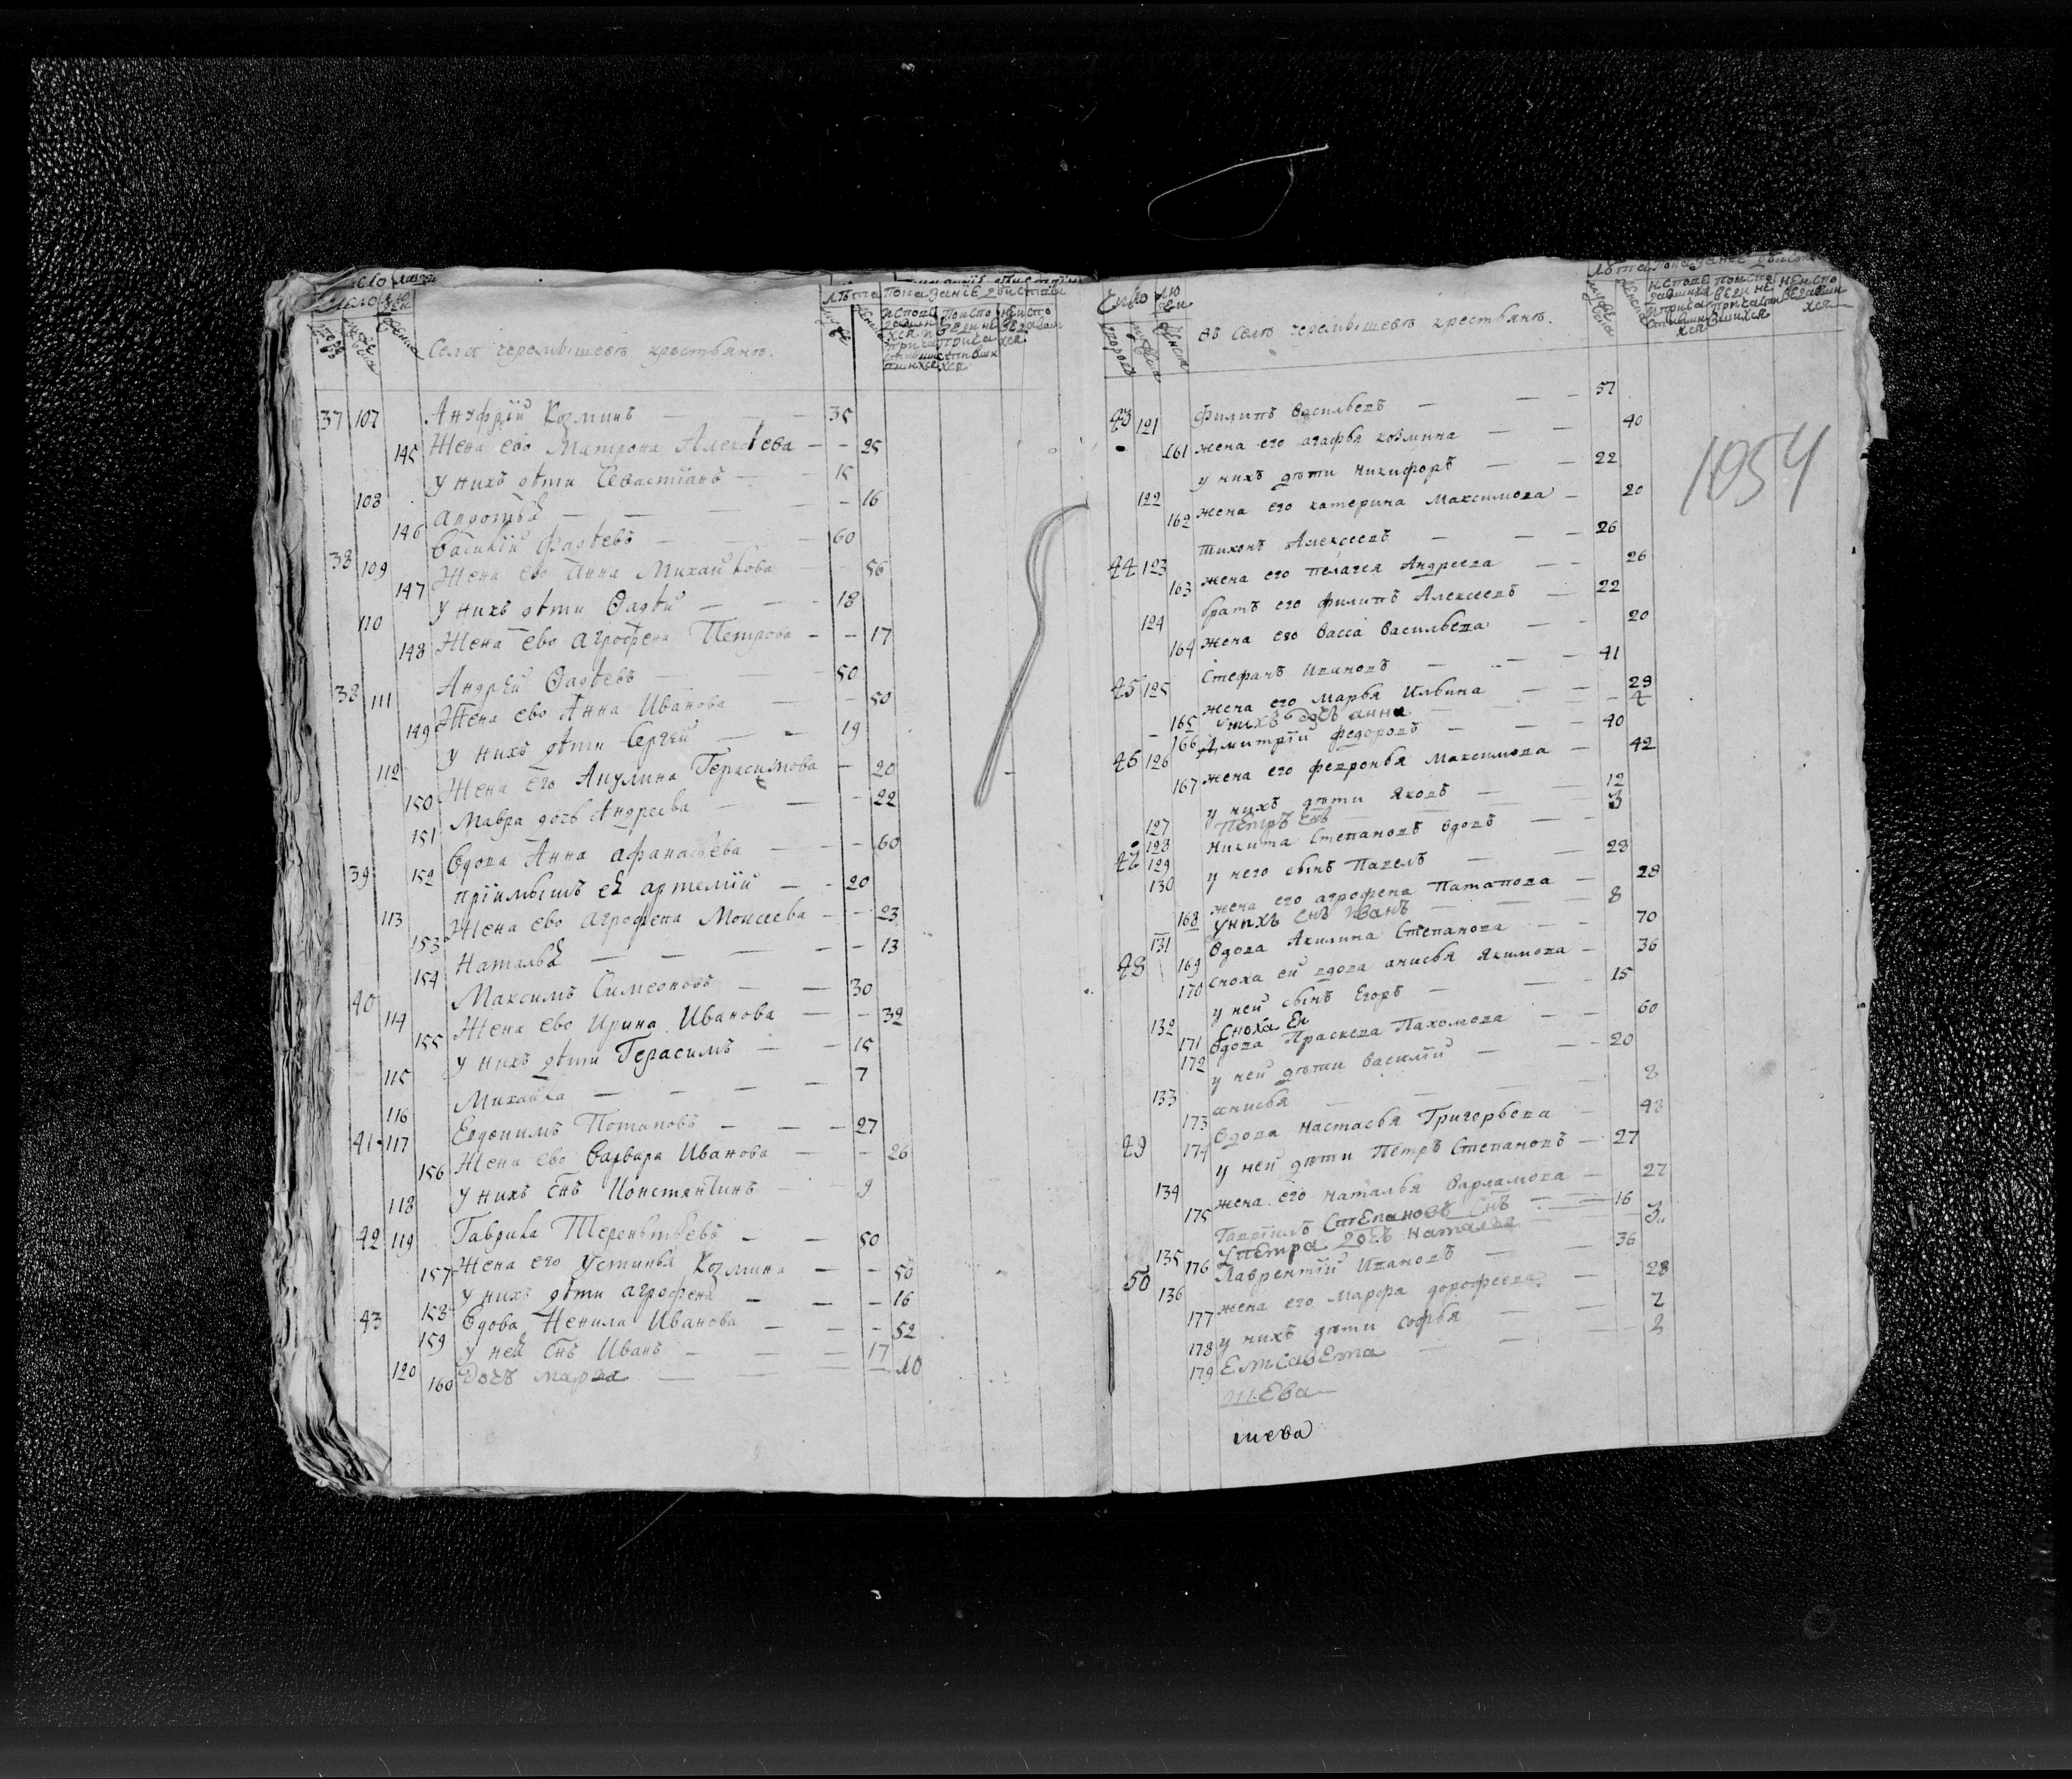 Число людей
Села черемышевъ крестьянъ.
лѣта Показание двиства
37 107 Ануфрїй Козминъ — — — 35
145 Жена ево Матрона Алексѣева — — 25
у нихъ дѣти Севастїянъ — 15
108 — — — — 16
146 Василїй Фадѣевъ — — — 60
38 109 Жена ево Анна Михайлова — 56
147 у нихъ дѣти Фадѣй — — — 18
110 Жена ево Агрофена Петрова — — 17
148
Андрей Фадѣевъ — 50
38 111 Жена ево Анна Иванова — — 50
149 у нихъ дѣти Сергей — — 19
112 Жена его Акулина Герасимова — 20
150 Мавра дочь Андреева — — — 22
151
Вдова Анна Афанасьева — — — 60
39 152 прїимышъ еѣ артемїй — — 20
113 Жена ево Агрофена Моисеева — — 23
153 Наталья — — — — — 13
154 Максимъ Симеоновъ — — 30
40 114 Жена ево Ирина Иванова — — 32
155 у нихъ дѣти Герасимъ — — 15
115 Михайла — — — — 7
116 Потаповъ — — — 27
41 117 Жена ево Варвара Иванова — — 26
156 у нихъ снъ Констянтинъ — — 9
118 Гаврила Терентьевъ — — 50
42 119 Жена его Устинья Козмина — — 50
157 у нихъ дѣти агрофена — — — 16
158 Вдова Ненила Иванова — — — 52
43 159 у ней снъ Иванъ — — — 17
120 160 дочь марья — — — 10
Число людей
въ Селѣ черемышевѣ крестьянъ.
лѣта Показание двиств
43 121 Филипъ Васильевъ — — — 57
161 жена его агафья козмина — — 40
у нихъ дѣти никифоръ — — 22
122 162 жена его катерина Максимова — 20
тихонъ Алексеевъ — — — 26
44 123 163 жена его пелагея Андреева — — 26
братъ его филипъ Алексеевъ — 22
124 164 жена его Васса Васильева — — 20
Стефанъ Ивановъ — — — 41
45 125 жена его Марья Ильина — — 29
165 у нихъ дочь анна — — 4
166 Дмитрїй федоровъ — — — 40
46 126 167 жена его февронья Максимова — 42
у нихъ дѣти яковъ — — 12
127 Петръ 3
128 Никита Степановъ вдовъ — —
47 129 у него сынъ Павелъ — — 28
130 жена его агрофена Патапова — 28
168 у нихъ снъ Иванъ — — 8
131 Вдова Акилина Степанова — — 70
48 169 сноха ей вдова анисья якимова — 36
170 у ней сынъ Егоръ — — — 15
132 сноха ея
171 Вдова Праскева Пахомова — — 60
172 у ней дѣти василїй — — — 20
133 анисья — — — 8
173 Вдова Настасья Григорьева — 48
49 174 у ней дѣти Петръ Степановъ — 27
134 жена его наталья варламова — 27
175 Гаврїилъ Степановъ снъ — — 16
135 у петра дочь наталья — 3
176 Лаврентїй Ивановъ — — — 36
50 136 жена его марфа дорофеева — 28
177 у нихъ дѣти софья — — 7
178
179 Елисавета — — 2
шева
шева
1054